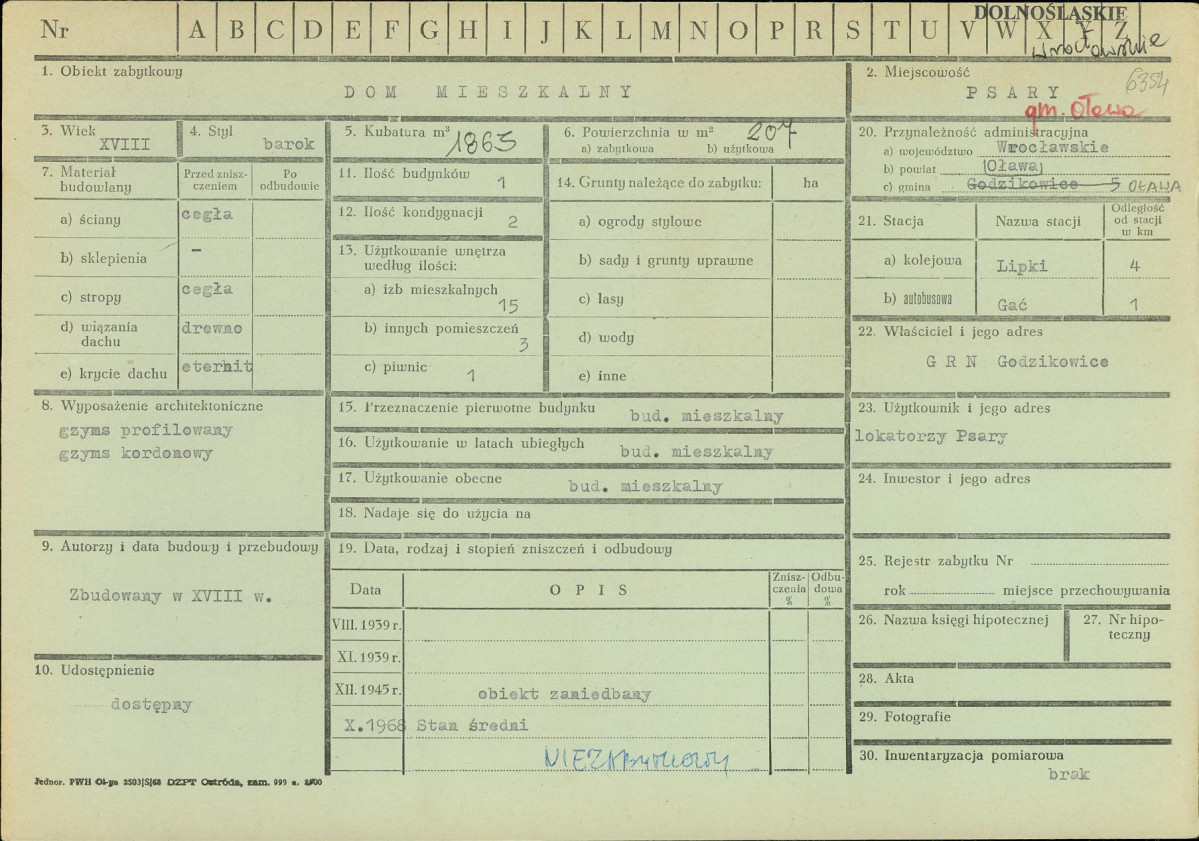 Nr A B C D E F G H I J K L M N O P R S T U V W X Y Z
DOLNOŚLĄSKIE
wrocławskie
1. Obiekt zabytkowy
DOM MIESZKALNY
2. Miejscowość
6354
PSARY
gm. Oława
3. Wiek
XVIII
4. Styl
barok
5. Kubatura m³
1863
6. Powierzchnia w m²
207
a) zabytkowa b) użytkowa
7. Materiał budowlany
Przed zniszczeniem
Po odbudowie
a) ściany cegła
b) sklepienia –
c) stropy cegła
d) wiązania dachu drewno
e) krycie dachu eternit
8. Wyposażenie architektoniczne
gzyms profilowany
gzyms kordonowy
9. Autorzy i data budowy i przebudowy
Zbudowany w XVIII w.
10. Udostępnienie
dostępny
11. Ilość budynków 1
12. Ilość kondygnacji 2
13. Użytkowanie wnętrza według ilości:
a) izb mieszkalnych 15
b) innych pomieszczeń 3
c) piwnic 1
14. Grunty należące do zabytku: ha
a) ogrody stylowe
b) sady i grunty uprawne
c) lasy
d) wody
e) inne
15. Przeznaczenie pierwotne budynku bud. mieszkalny
16. Użytkowanie w latach ubiegłych bud. mieszkalny
17. Użytkowanie obecne bud. mieszkalny
18. Nadaje się do użycia na
19. Data, rodzaj i stopień zniszczeń i odbudowy
Data OPIS Zniszczenia % Odbudowa %
VIII. 1939 r.
XI. 1939 r.
XII. 1945 r. obiekt zaniedbany
X.1968 Stan średni
NIEZABYTKOWY
20. Przynależność administracyjna
a) województwo Wrocławskie
b) powiat Oława
c) gmina Godzikowice 5 OŁAWA
21. Stacja Nazwa stacji Odległość od stacji w km
a) kolejowa Lipki 4
b) autobusowa Gać 1
22. Właściciel i jego adres
GRN Godzikowice
23. Użytkownik i jego adres
lokatorzy Psary
24. Inwestor i jego adres
25. Rejestr zabytku Nr
rok miejsce przechowywania
26. Nazwa księgi hipotecznej
27. Nr hipoteczny
28. Akta
29. Fotografie
30. Inwentaryzacja pomiarowa
brak
Jednor. PWH 2503|S|68 DZPT Ostróda, zam. 999 n.